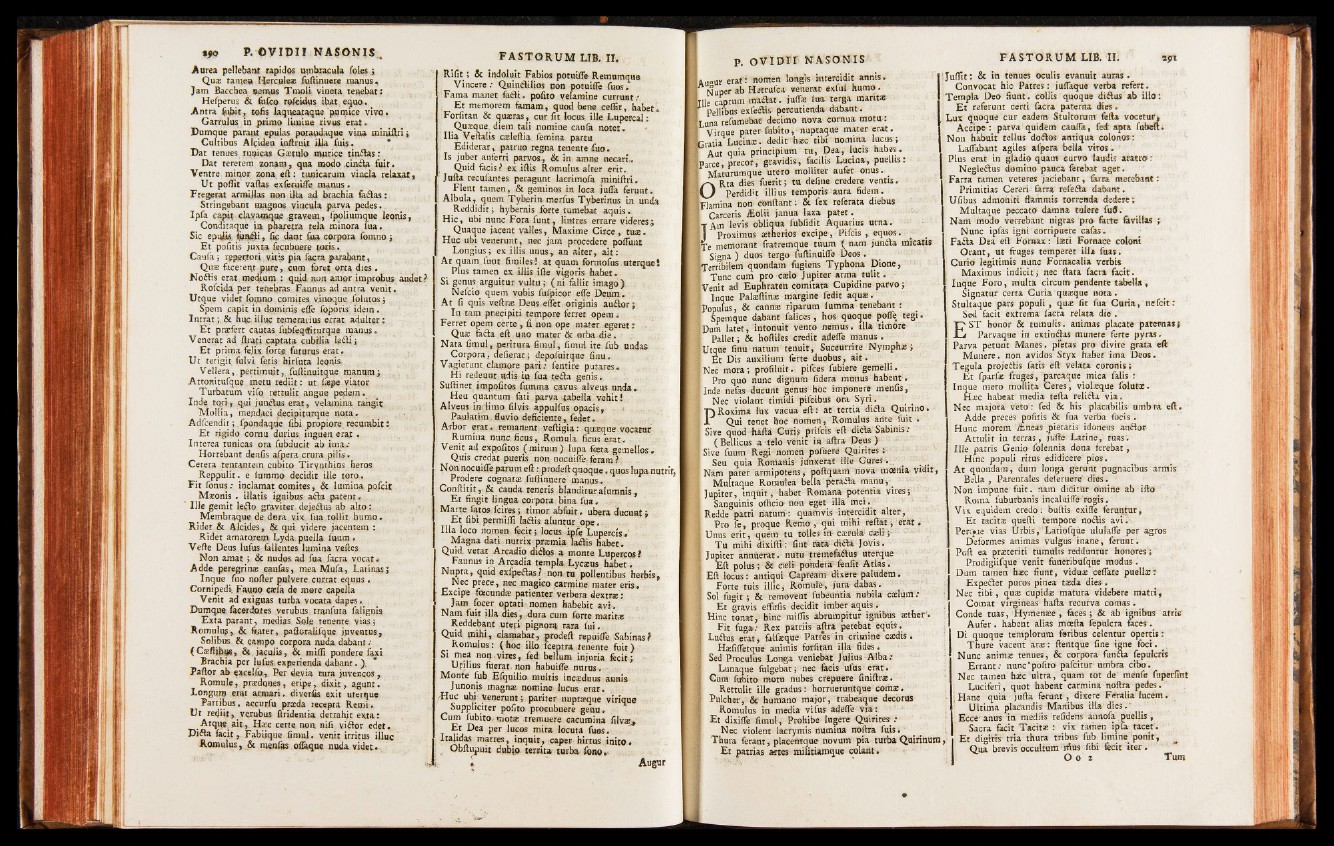 290 P. OVIDII NASONIS
Aurea pellebant rapidos umbracula soles;
Quæ tamen Herculeæ sustinuere manus.
Jam Bacchea nemus Tmoli vineta tenebat:
Hesperus & fusco roscidus ibat equo.
Antra subit, tofis laqueataque pumice vivo.
Garrulus in primo limine rivus erat.
Dumque parant epulas potandaque vina ministri;
Cultibus Alciden instruit illa suis.
Dat tenues tunicas Gætulo murice tinctas:
Dat teretem zonam, qua modo cincta fuit.
Ventre minor zona est: tunicarum vincla relaxat,
Ut possit vastas exseruisse manus.
Fregerat armillas non illa ad brachia factas:
Stringebant magnos vincula parva pedes.
Ipsa capit clavamque gravem, spoliumque leonis,
Conditaque in pharetra tela minora sua.
Sic epulis functi, sic dant sua corpora somno;
Et positis juxta secubuere toris.
Causa; repertori vitis pia sacra parabant,
Quæ facerent pure, cum foret orta dies.
Noctis erat medium: quid non amor improbus audet?
Roscida per tenebras Faunus ad antra venit.
Utque videt somno comites vinoque solutos;
Spem capit in dominis esse soporis idem.
Intrat; & huc illuc temerarius errat adulter:
Et præfert cautas subsequiturque manus.
Venerat ad strati captata cubilia lecti;
Et prima felix sorte futurus erat.
Ut tetigit fulvi setis hirsuta leonis
Vellera, pertimuit, sustinuitque manum;
Attonitusque metu rediit: ut sæpe viator
Turbatum viso rettulit angue pedem.
Inde tori, qui junctus erat, velamina tangit
Mollia, mendaci decipiturque nota.
Adscendit; spondaque sibi propiore recumbit:
Et rigido cornu durius inguen erat.
Interea tunicas ora subducit ab ima:
Horrebant densis aspera crura pilis.
Cetera tentantem cubito Tirynthius heros
Reppulit. e summo decidit ille toro.
Fit sonus: inclamat comites, & lumina poscit
Mæonis. illatis ignibus acta patent.
Ille gemit lecto graviter dejectus ab alto:
Membraque de dura vix sua tollit humo.
Ridet & Alcides, & qui videre jacentem:
Ridet amatorem Lyda puella suum.
Veste Deus lusus fallentes lumina vestes
Non amat; & nudos ad sua sacra vocat.
Adde peregrinæ causas, mea Musa, Latinas;
Inque suo noster pulvere currat equus.
Cornipedi Fauno cæsa de more capella
Venit ad exiguas turba vocata dapes.
Dumque sacerdotes verubus transuta salignis
Exta parant, medias Sole tenente vias;
Romulus, & frater, pastoralisque juventus,
Solibus & campo corpora nuda dabant:
(Cæstibus, & jaculis, & missi pondere saxi
Brachia per lusus experienda dabant.).
Pastor ab excelso, Per devia rura juvencos,
Romule, prædones, eripe, dixit, agunt.
Longum erat armari. diversis exit uterque
Partibus. accursu præda recepta Remi.
Ut rediit, verubus stridentia detrahit exta:
Atque ait, Hæc certe non nisi victor edet.
Dicta facit, Fabiique simul. venit irritus illuc
Romulus, & mensas ossaque nuda videt.
FASTORUM LIB. II.
Risit; & indoluit Fabios potuisse Remumque
Vincere: Quinctilios non potuisse suos.
Fama manet facti. posito velamine currunt:
Et memorem famam, quod bene cessit, habet.
Forsitan & quæras, cur sit locus ille Lupercal:
Quæque diem tali nomine causa notet.
Ilia Vestalis cælestia semina partu
Ediderat, patruo regna tenente suo.
Is jubet auferri parvos, & in amne necari.
Quid facis? ex istis Romulus alter erit.
Jussa recusantes peragunt lacrimosa ministri.
Flent tamen, & geminos in loca jussa ferunt.
Albula, quem Tyberin mersus Tyberinus in unda
Reddidit; hybernis forte tumebat aquis.
Hic, ubi nunc Fora sunt, lintres errare videres;
Quaque jacent valles, Maxime Circe, tuæ.
Huc ubi venerunt, nec jam procedere possunt
Longius; ex illis unus, an alter, ait:
At quam sunt similes! at quam formosus uterque!
Plus tamen ex illis iste vigoris habet.
Si genus arguitur vultu; (ni fallit imago)
Nescio quem vobis suspicor esse Deum.
At si quis vestræ Deus esset originis auctor;
In tam præcipiti tempore ferret opem.
Ferret opem certe, si non ope mater egeret:
Quæ facta est uno mater & orba die.
Nata simul, peritura simul, simul ite sub undas
Corpora, desierat; deposuitque sinu.
Vagierunt clamore pari: sentire putares.
Hi redeunt udis in sua tecta genis.
Sustinet impositos summa cavus alveus unda.
Heu quantum fati parva tabella vehit!
Alveus in limo silvis appulsus opacis,
Paulatim fluvio deficiente, sedet.
Arbor erat. remanent vestigia: quæque vocatur
Rumina nunc ficus, Romula ficus erat.
Venit ad expositos (mirum) lupa fœta gemellos.
Quis credat pueris non nocuisse feram?
Non nocuisse parum est: prodest quoque. quos lupa nutrit,
Prodere cognatæ sustinuere manus.
Constitit, & cauda teneris blanditur alumnis,
Et fingit lingua corpora bina sua.
Marte satos scires; timor abfuit. ubera ducunt;
Et sibi permissi lactis aluntur ope.
Illa loco nomen fecit; locus ipse Lupercis.
Magna dati nutrix præmia lactis habet.
Quid vetat Arcadio dictos a monte Lupercos?
Faunus in Arcadia templa Lycæus habet.
Nupta, quid exspectas? non tu pollentibus herbis,
Nec prece, nec magico carmine mater eris.
Excipe fœcundæ patienter verbera dextræ:
Jam socer optati nomen habebit avi.
Nam fuit illa dies, dura cum sorte maritæ
Reddebant uteri pignora rara sui.
Quid mihi, clamabat, prodest repuisse Sabinas?
Romulus: (hoc illo sceptra tenente fuit)
Si mea non vires, sed bellum injuria fecit;
Utilius fuerat non habuisse nurus.
Monte sub Esquilio multis incæduus annis
Junonis magnæ nomine lucus erat.
Huc ubi venerunt; pariter nuptæque virique
Suppliciter posito procubuere genu.
Cum subito motæ tremuere cacumina silvæ,
Et Dea per lucos mira locuta suos.
Italidas matres, inquit, caper hirtus inito.
Obstupuit dubio territa turba sono.
Augur
P. OVIDII NASONIS
Augur erat: nomen longis intercidit annis.
Nuper ab Hetrusca venerat exsul humo.
Ille caprum mactat. jussæ sua terga maritæ
Pellibus exsectis percutienda dabant.
Luna resumebat decimo nova cornua motu:
Virque pater subito, nuptaque mater erat.
Gratia Lucinæ. dedit hæc tibi nomina lucus;
Aut quia principium tu, Dea, lucis habes.
Parce, precor, gravidis, facilis Lucina, puellis:
Maturumque utero molliter aufer onus.
ORta dies fuerit; tu desine credere ventis.
Perdidit illius temporis aura fidem.
Flamina non constant: & sex referata diebus
Carceris Æolii janua laxa patet.
JAm levis obliqua subsidit Aquarius urna.
Proximus ætherios excipe, Piscis, equos.
Te memorant fratremque tuum (nam juncta micatis
Signa) duos tergo sustinuisse Deos.
Terribilem quondam fugiens Typhona Dione,
Tunc cum pro cælo Jupiter arma tulit.
Venit ad Euphraten comitata Cupidine parvo;
Inque Palæstinæ margine sedit aquæ.
Populus, & cannæ riparum summa tenebant:
Spemque dabant salices, hos quoque posse tegi.
Dum latet, intonuit vento nemus. illa timore
Pallet; & hostiles credit adesse manus.
Utque sinu natum tenuit, Succurrite Nymphæ;
Et Dis auxilium ferte duobus, ait.
Nec mora; prosiluit. pisces subiere gemelli.
Pro quo nunc dignum sidera munus habent.
Inde nefas ducunt genus hoc imponere mensis,
Nec violant timidi piscibus ora Syri.
PRoxima lux vacua est: at tertia dicta Quirino.
Qui tenet hoc nomen, Romulus ante fuit.
Sive quod hasta Curis priscis est dicta Sabinis:
(Bellicus a telo venit in astra Deus)
Sive suum Regi nomen posuere Quirites:
Seu quia Romanis junxerat ille Cures.
Nam pater armipotens, postquam nova mœnia vidit,
Multaque Romulea bella peracta manu,
Jupiter, inquit, habet Romana potentia vires;
Sanguinis officio non eget illa mei.
Redde patri natum: quamvis intercidit alter,
Pro se, proque Remo, qui mihi restat, erat.
Unus erit, quem tu tolles in cærula cæli;
Tu mihi dixisti: sint rata dicta Jovis.
Jupiter annuerat. nutu tremefactus uterque
Est polus; & cæli pondera sensit Atlas.
Est locus: antiqui Capream dixere paludem.
Forte tuis illic, Romule, jura dabas.
Sol fugit; & removent subeuntia nubila cælum:
Et gravis effusis decidit imber aquis.
Hinc tonat, hinc missis abrumpitur ignibus æther.
Fit fuga: Rex patriis astra petebat equis.
Luctus erat, falsæque Patres in crimine cædis.
Hæsissetque animis forsitan illa fides.
Sed Proculus Longa veniebat Julius Alba:
Lunaque fulgebat; nec facis usus erat.
Cum subito motu nubes crepuere sinistræ.
Rettulit ille gradus: horrueruntque comæ.
Pulcher, & humano major, trabeaque decorus
Romulus in media visus adesse via:
Et dixisse simul, Prohibe lugere Quirites:
Nec violent lacrymis numina nostra suis.
Thura ferant, placentque novum pia turba Quirinum,
Et patrias artes militiamque colant.
FASTORUM LIB. II. 291
Jussit: & in tenues oculis evanuit auras.
Convocat hic Patres: jussaque verba refert.
Templa Deo fiunt. collis quoque dictus ab illo:
Et referunt certi sacra paterna dies.
Lux quoque cur eadem Stultorum festa vocetur,
Accipe: parva quidem caussa, sed apta subest.
Non habuit tellus doctos antiqua colonos:
Lassabant agiles aspera bella viros.
Plus erat in gladio quam curvo laudis aratro:
Neglectus domino pauca ferebat ager.
Farra tamen veteres jaciebant, farra metebant:
Primitias Cereri farra resecta dabant.
Usibus admoniti flammis torrenda dedere;
Multaque peccato damna tulere suo.
Nam modo verrebant nigras pro farre favillas;
Nunc ipsas igni corripuere casas.
Facta Dea est Fornax: læti Fornace coloni
Orant, ut fruges temperet illa suas.
Curio legitimis nunc Fornacalia verbis
Maximus indicit; nec stata sacra facit.
Inque Foro, multa circum pendente tabella,
Signatur certa Curia quæque nota.
Stultaque pars populi, quæ sit sua Curia, nescit:
Sed facit extrema sacra relata die.
EST honor & tumulis. animas placate paternas;
Parvaque in extinctas munere ferte pyras.
Parva petunt Manes. pietas pro divite grata est
Munere. non avidos Styx habet ima Deos.
Tegula projectis satis est velata coronis;
Et sparsæ fruges, parcaque mica salis:
Inque mero mollita Ceres, violæque solutæ.
Hæc habeat media testa relicta via.
Nec majora veto: sed & his placabilis umbra est.
Adde preces positis & sua verba focis.
Hunc morem Æneas pietatis idoneus auctor
Attulit in terras, juste Latine, tuas.
Ille patris Genio solennia dona ferebat,
Hinc populi ritus edidicere pios.
At quondam, dum longa gerunt pugnacibus armis
Bella, Parentales deseruere dies.
Non impune fuit. nam dicitur omine ab isto
Roma suburbanis incaluisse rogis.
Vix equidem credo: bustis exisse feruntur,
Et tacitæ questi tempore noctis avi.
Perque vias Urbis, Latiosque ululasse per agros
Deformes animas vulgus inane, ferunt.
Post ea præteriti tumulis redduntur honores;
Prodigiisque venit funeribusque modus.
Dum tamen hæc fiunt, viduæ cessate puellæ:
Expectet puros pinea tæda dies.
Nec tibi, quæ cupidæ matura videbere matri,
Comat virgineas hasta recurva comas.
Conde tuas, Hymenæe, faces; & ab ignibus atris
Aufer. habent alias mœsta sepulcra faces.
Di quoque templorum foribus celentur opertis:
Thure vacent aræ: stentque sine igne foci.
Nunc animæ tenues, & corpora functa sepulcris
Errant: nunc posito pascitur umbra cibo.
Nec tamen hæc ultra, quam tot de mense supersint
Luciferi, quot habent carmina nostra pedes.
Hanc quia justa ferunt, dixere Feralia lucem.
Ultima placandis Manibus illa dies.
Ecce anus in mediis residens annosa puellis,
Sacra facit Tacitæ: vix tamen ipsa tacet.
Et digitis tria thura tribus sub limine ponit,
Qua brevis occultum mus sibi fecit iter.
Oo 2 Tum